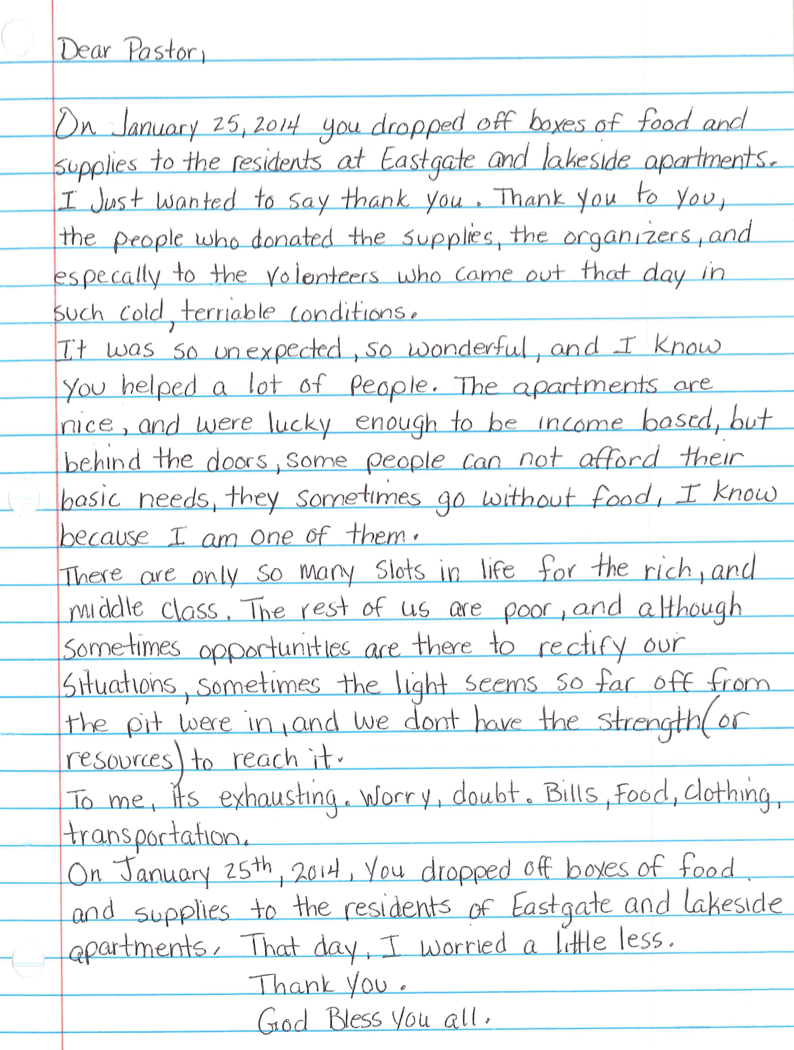 Dear Pastor,
On January 25, 2014 you dropped off boxes of food and
supplies to the residents at Eastgate and lakeside apartments.
I Just wanted to say thank you. Thank you to you,
the people who donated the supplies, the organizers, and
especally to the volenteers who came out that day in
such cold, terriable conditions.
It was so unexpected, so wonderful, and I know
you helped a lot of people. The apartments are
nice, and were lucky enough to be income based, but
behind the doors, some people can not afford their
basic needs, they sometimes go without food, I know
because I am one of them.
There are only so many slots in life for the rich, and
middle class. The rest of us are poor, and although
sometimes opportunities are there to rectify our
situations, sometimes the light seems so far off from
the pit were in, and we dont have the strength (or
resources) to reach it.
To me, its exhausting. Worry, doubt. Bills, Food, clothing,
transportation.
On January 25th, 2014, you dropped off boxes of food
and supplies to the residents of Eastgate and lakeside
apartments, That day, I worried a little less.
Thank you.
God Bless you all.